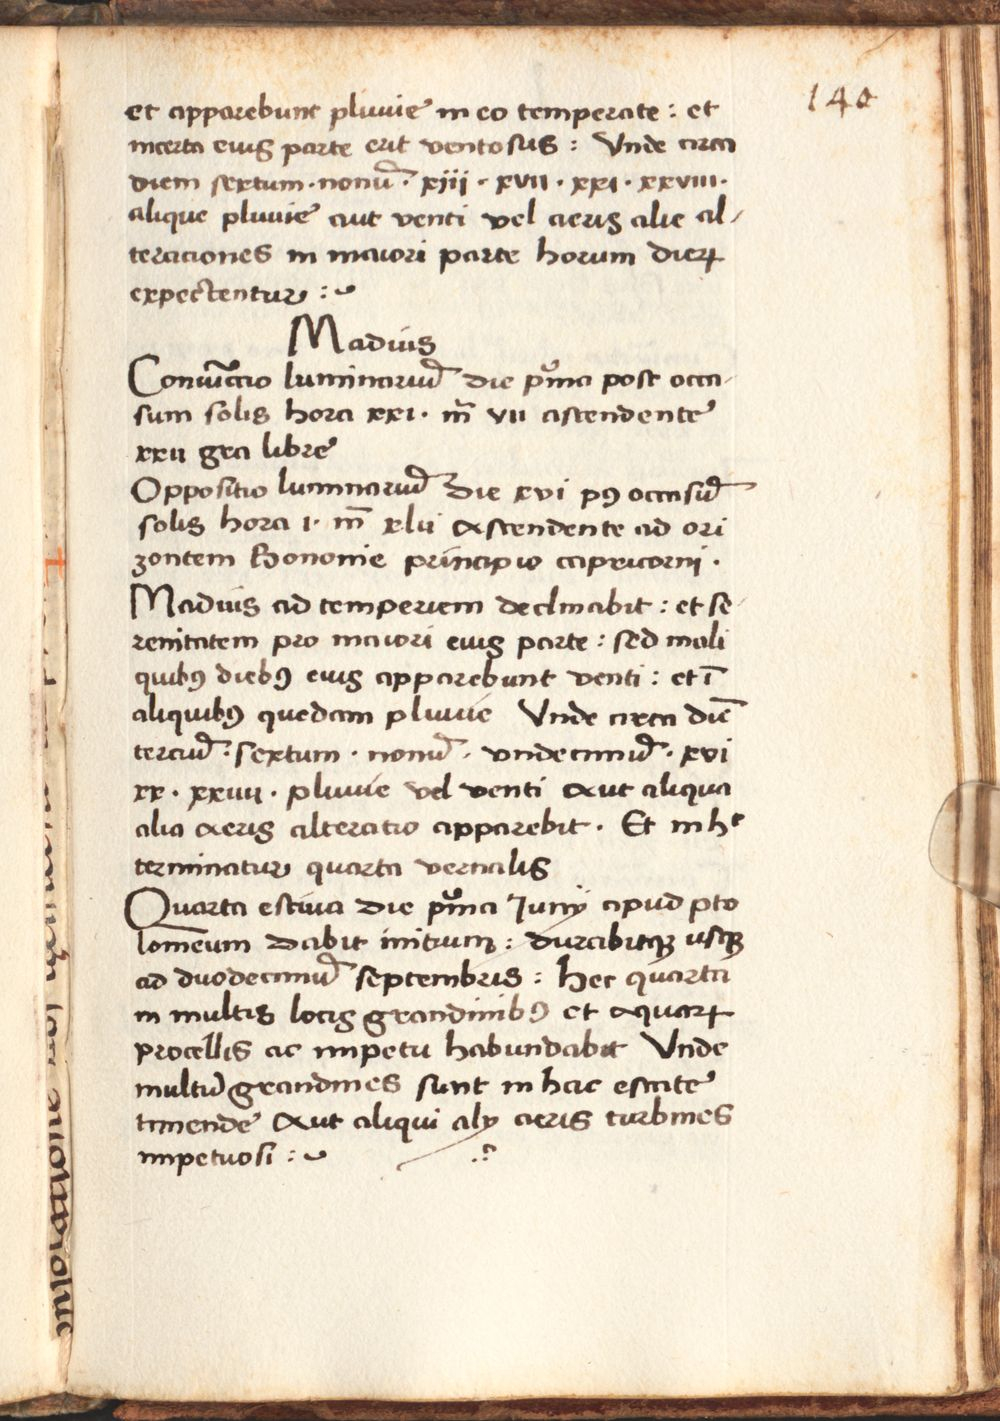 140
et apparebunt pluuie in eo temperate : et
incerta eius parte erit ventosus : Vnde circa
diem sextum · nonū · xiii · xvii · xxi · xxviii ·
alique pluuie aut venti vel aeris alie al-
teraciones in maiori parte horum dierꝝ
expectentur :
Madius
Coniu̅ctio luminariū die pͥma post occa-
sum solis hora xxi · m̄ vii ascendente
xxii gra libre
Oppositio luminariū die xvi pꝰ occasū
solis hora i · m̄ xlii Ascendente ad ori
zontem Bononie principio capricorni ·
Madius ad temperiem declinabit : et se-
renitatem pro maiori eius parte : sed in ali
quibꝰ diebꝰ eius apparebunt venti : et ī
aliquibꝰ quedam pluuie Vnde circa diē
terciū · sextum · nonū · vndecimū · xvi
xx · xxiiii · pluuie vel venti Aut aliqua
alia Aeris alteratio apparebit · Et in hͦ
terminatur quarta vernalis
Quarta estiua die pͥma Iunij apud pto
lomeum dabit initium : durabitqꝫ usqꝫ
ad duodecimū septembris : Hec quarta
in multis locis grandinibꝰ et Aquarꝝ
procellis ac impetu habundabit Vnde
multū grandines sunt in hac estate
timende Aut aliqui alij aeris turbines
impetuosi :